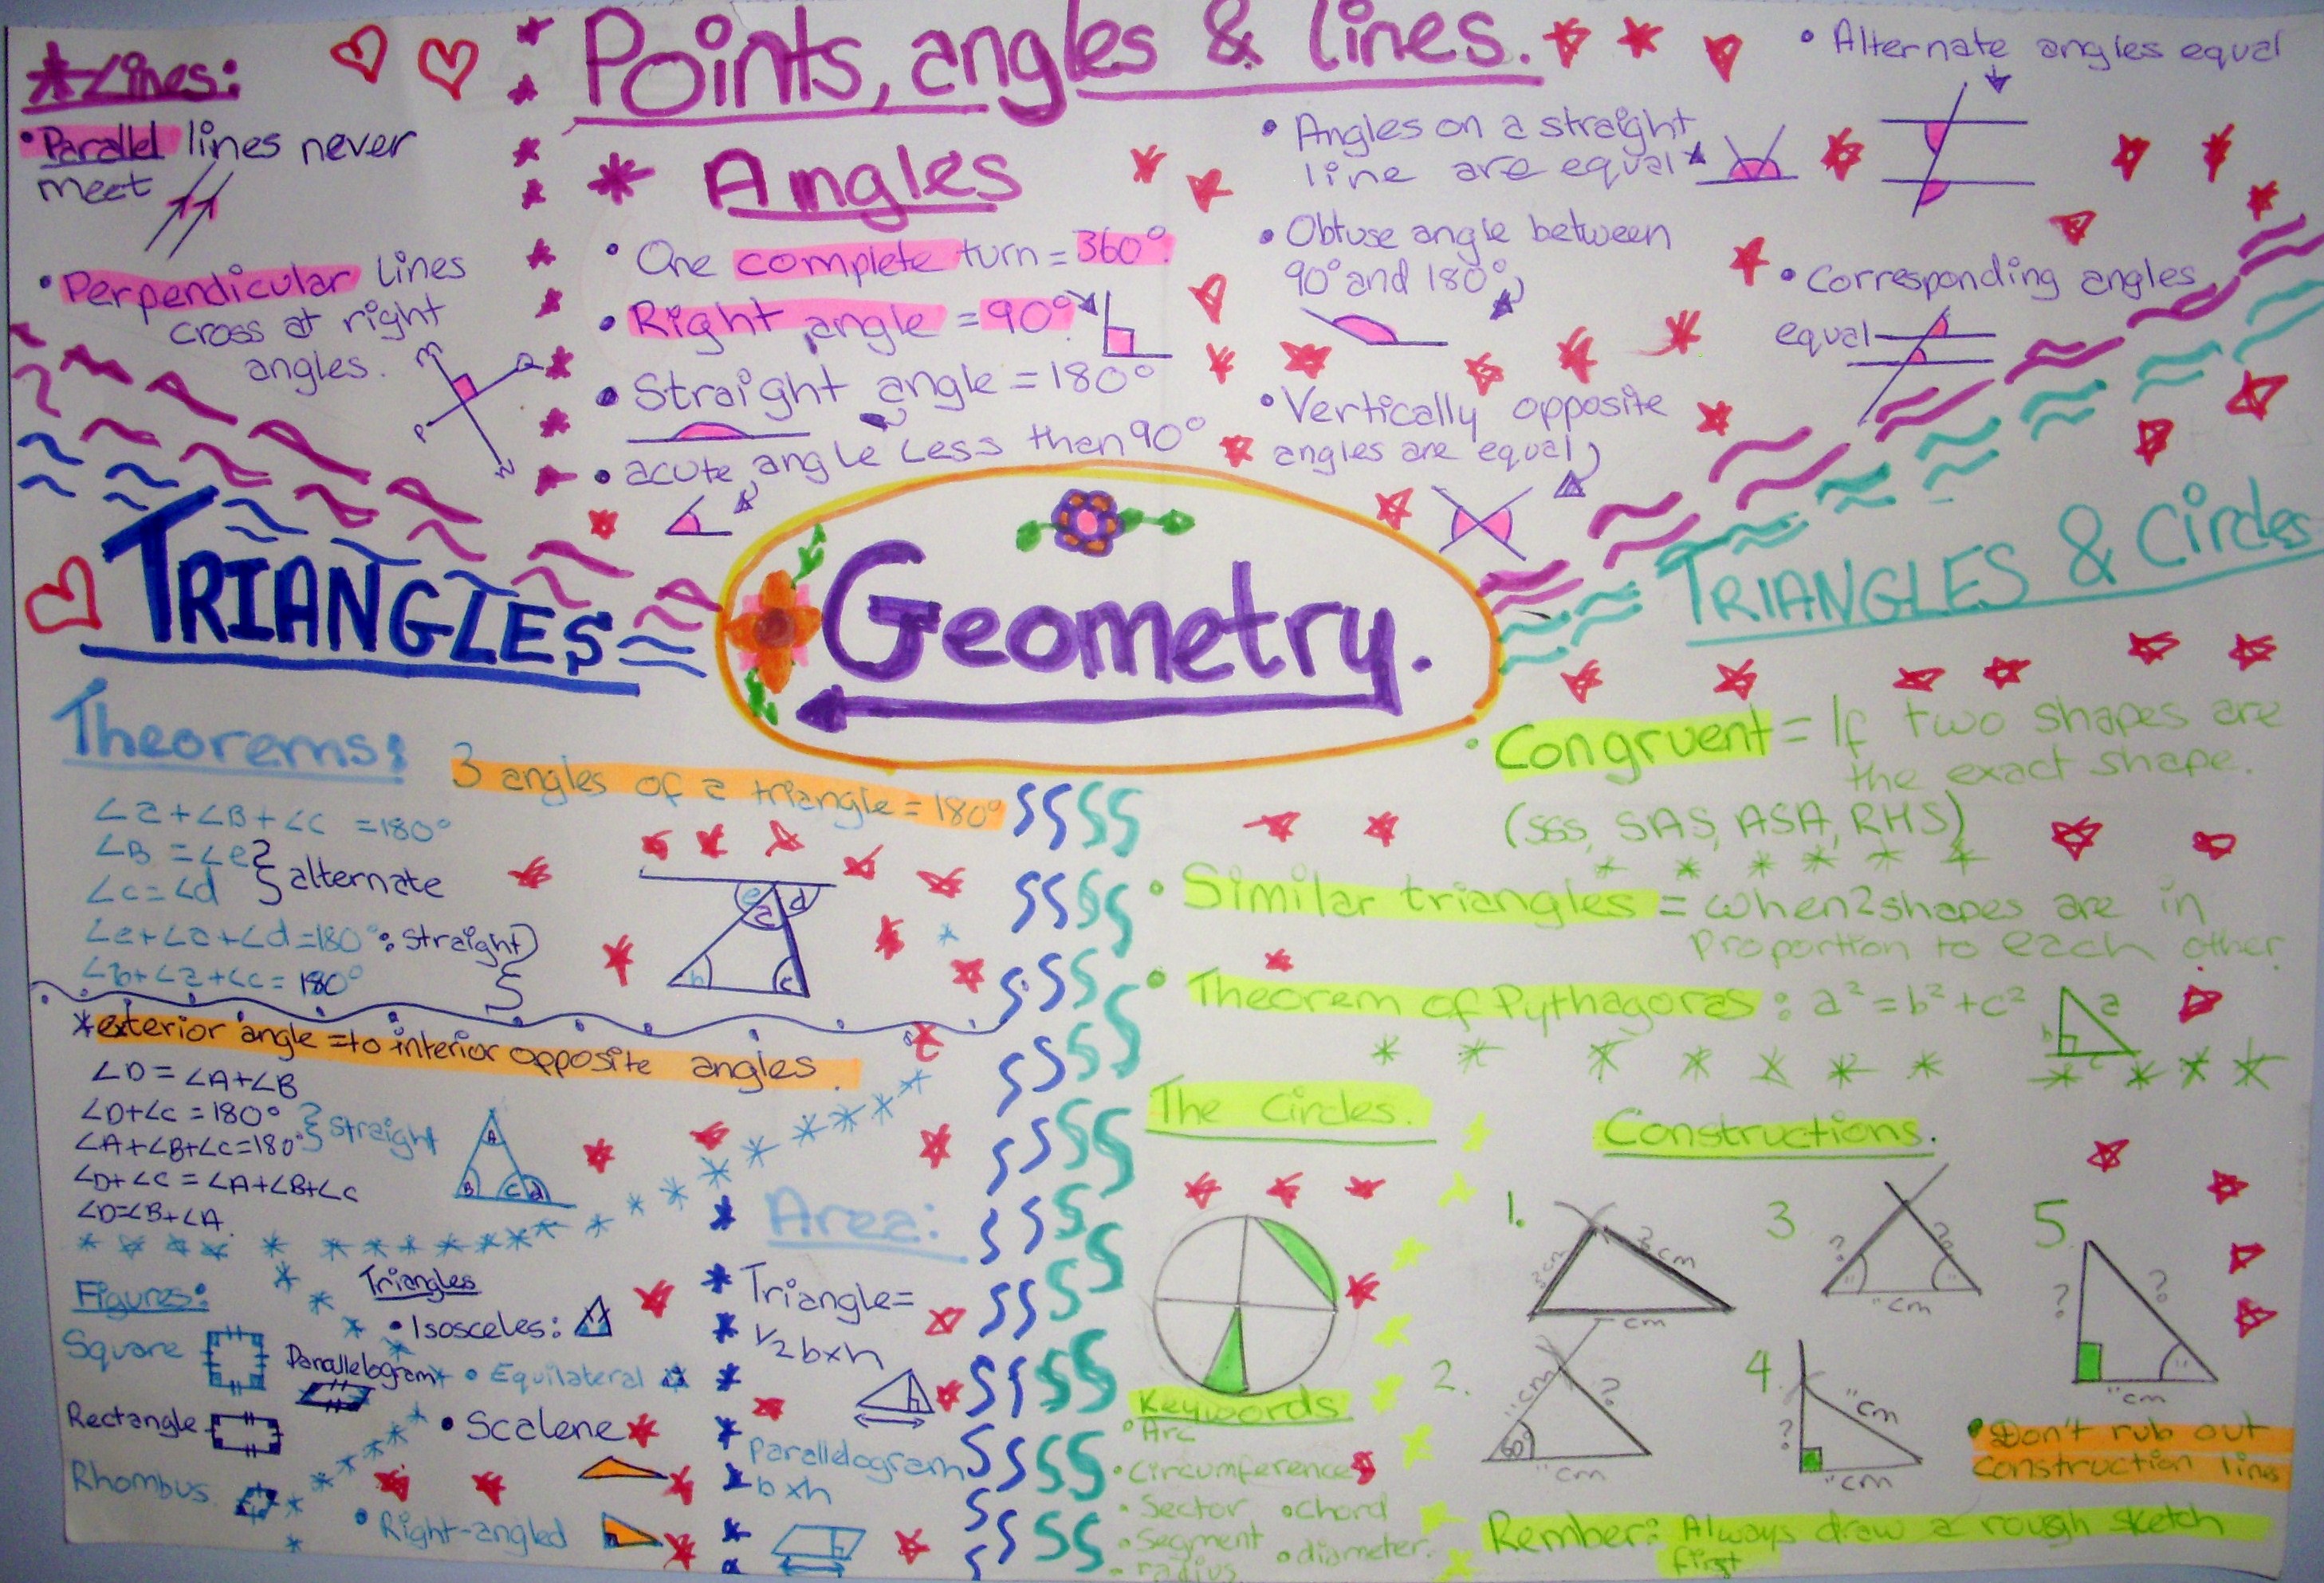 Points, angles & lines.
*Lines:
• Parallel lines never
meet
• Perpendicular lines
cross at right
angles.
M
Q
P
N
* Angles
• One complete turn = 360°.
• Right angle = 90°
• Straight angle = 180°
• acute angle Less then 90°
• Angles on a straight
line are equal
• Obtuse angle between
90° and 180°
• Vertically opposite
angles are equal
• Alternate angles equal
• Corresponding angles
equal
Geometry.
TRIANGLES
Theorems:
3 angles of a triangle = 180°
∠a+∠B+∠C =180°
∠B =∠e
∠c=∠d
alternate
∠e+∠a+∠d=180°: straight
∠b+∠a+∠c= 180°
e a d
b c
*exterior angle =to interior opposite angles.
∠D= ∠A+∠B
∠D+∠C = 180°
straight
∠A+∠B+∠C=180°
∠D+∠C = ∠A+∠B+∠C
∠D=∠B+∠A
A
B C d
Figures:
Square
Parallelogram
Rectangle
Rhombus
Triangles
• Isosceles:
• Equilateral
• Scalene
• Right-angled
Area:
Triangle=
1/2 b×h
h
Parallelogram
b×h
TRIANGLES & Circles
• Congruent = If two shapes are
the exact shape.
(SSS, SAS, ASA, RHS)
• Similar triangles = when 2 shapes are in
Proportion to each other.
• Theorem of Pythagoras: a² = b² + c²
a
b
c
The Circles.
Keywords
• Arc
• Circumference
• Sector • chord
• Segment • diameter.
- radius
Constructions.
1.
cm
cm
cm
2.
"cm
?
60°
"cm
3
?
?
"
"
"cm
4.
?
"cm
"cm
5.
?
?
"
"cm
• Don't rub out
construction lines
Rember: Always draw a rough sketch
first